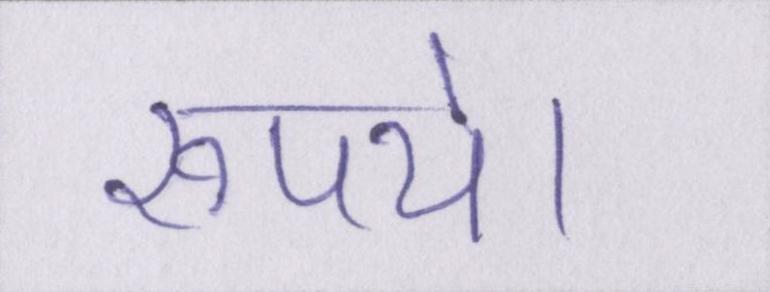 रूपये।